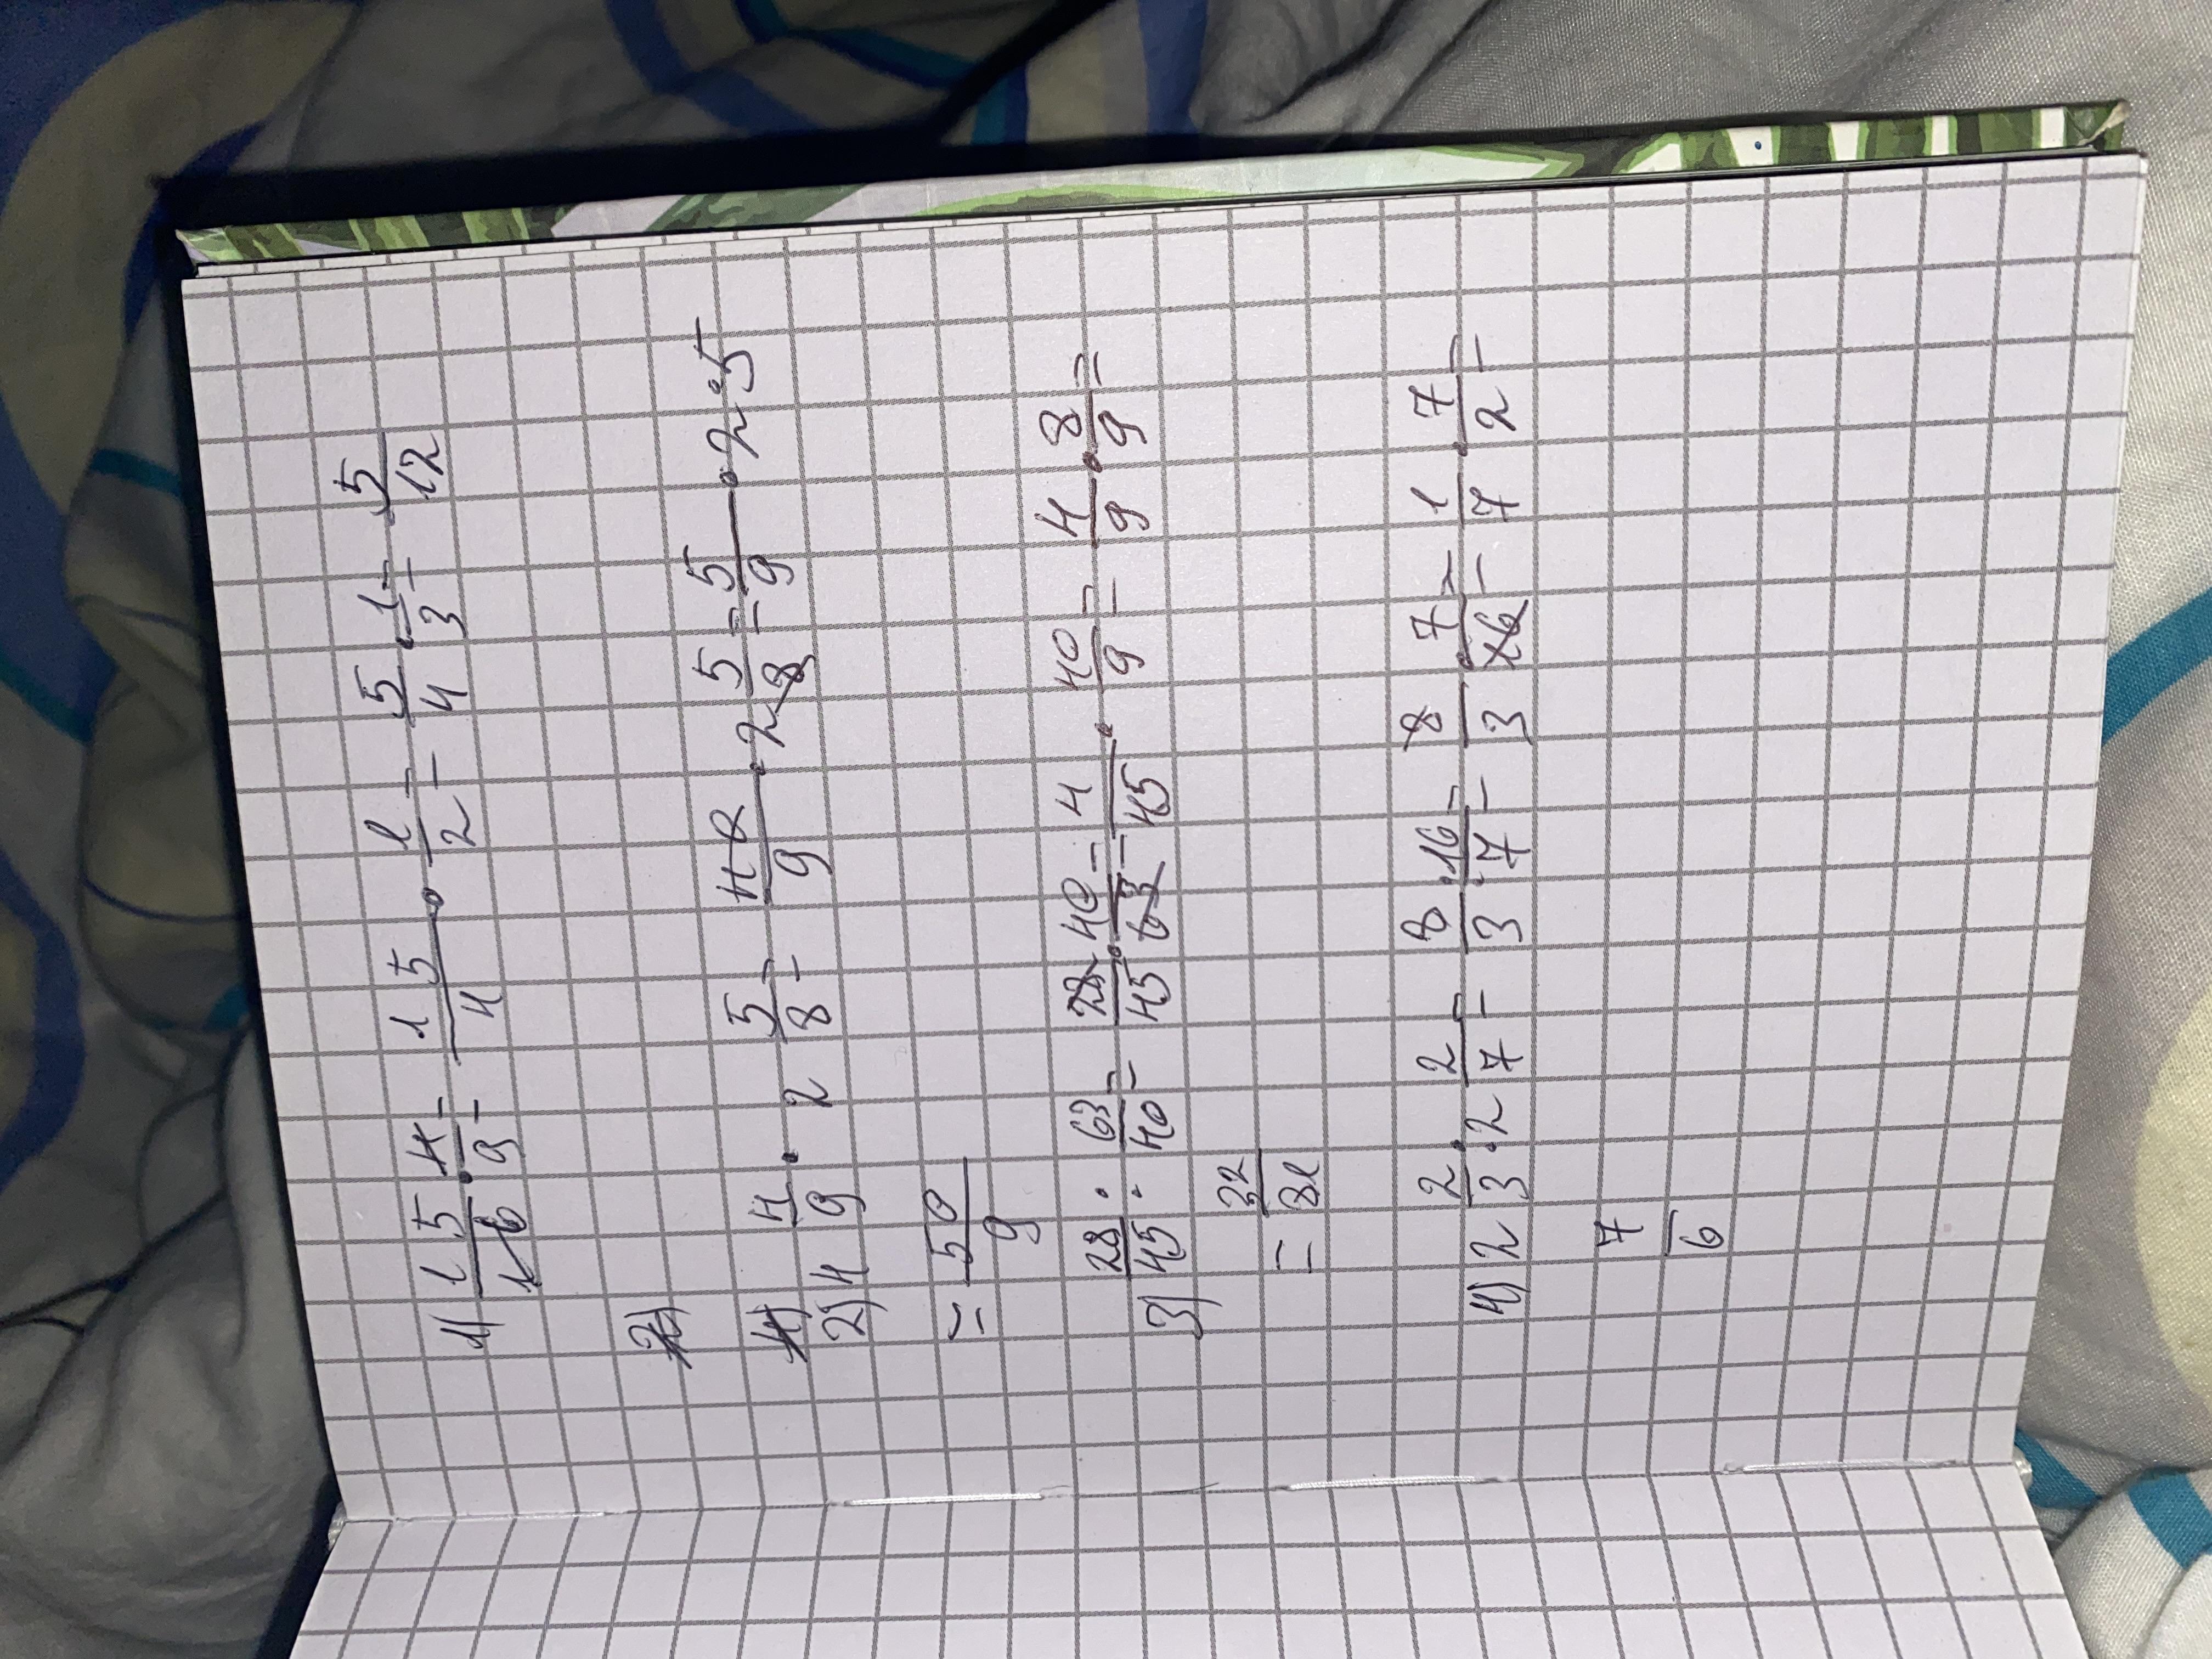 1) 15/16 · 4/9 = 15/4 · 1/2 = 5/4 · 1/3 = 5/12
2)
4)
2) 4 4/9 · 2 5/8 = 40/9 · 2 5/8 = 5/9 · 2·5
= 50/9
3) 28/45 : 63/40 = 28/45 · 40/63 = 4/45 · 40/9 = 4/9 · 8/9 =
= 32/81
4) 2 2/3 : 2 2/7 = 8/3 : 16/7 = 8/3 · 7/16 = 1/7 · 7/2 =
7/6